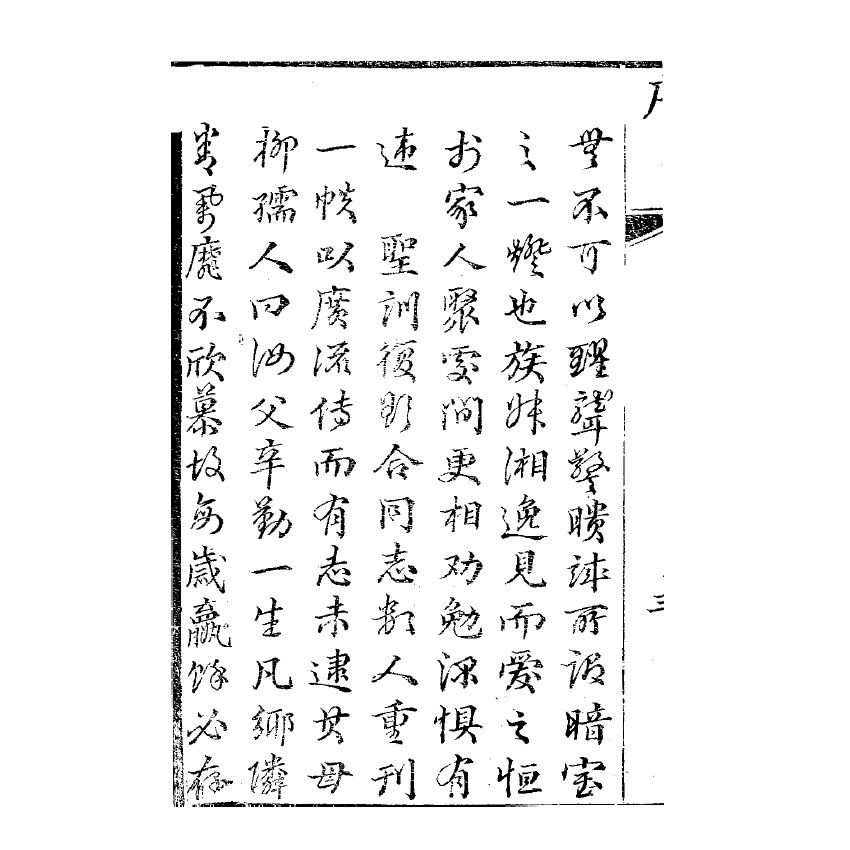 無不可以醒聾警聵誠所謂暗室
之一燈也族妹湘逸見而愛之恒
於家人聚處間更相劝勉深懼有
違　聖訓復欲合同志數人重刊
一帙以廣流傳而有志未逮其母
柳孺人曰汝父辛勤一生凡鄉隣
善舉靡不欣慕故每歲贏餘必存
三